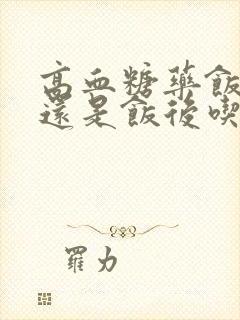 高血糖藥飯
還是飯後喫
羅力